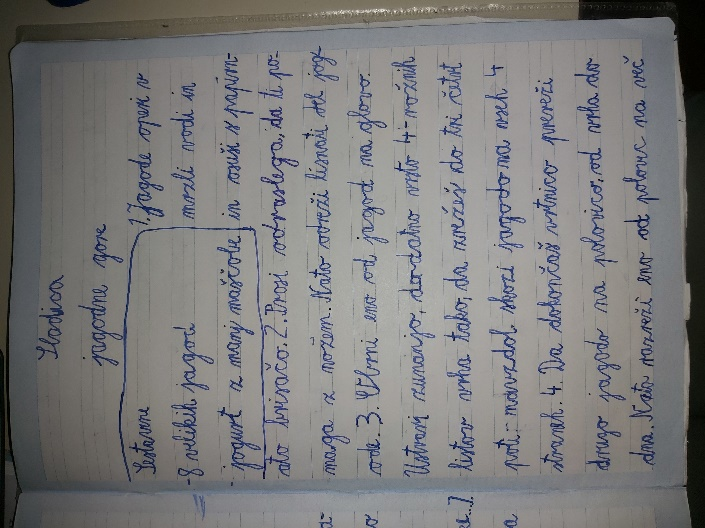 Sladica
jagodne gore
Sestavine
- 8 velikih jagod
- jogurt z manj maščobe
1. Jagode operi v
mrzli vodi in
in osuši s papirn-
ato brisačo. 2. Prosi odraslega, da ti po-
maga z nožem. Nato obreži listnati del jag-
ode. 3. Obrni eno od jagod na glavo.
Ustvari zunanjo, dodatno vrsto 4-rožnih
listov vrha tako, da zarežeš do tri četrt
poti navzdol skozi jagodo na vseh 4
straneh. 4. Da dokončaš vrtnico prereži
drugo jagodo na polovico, od vrha do
dna. Nato nareži eno od polovic na več